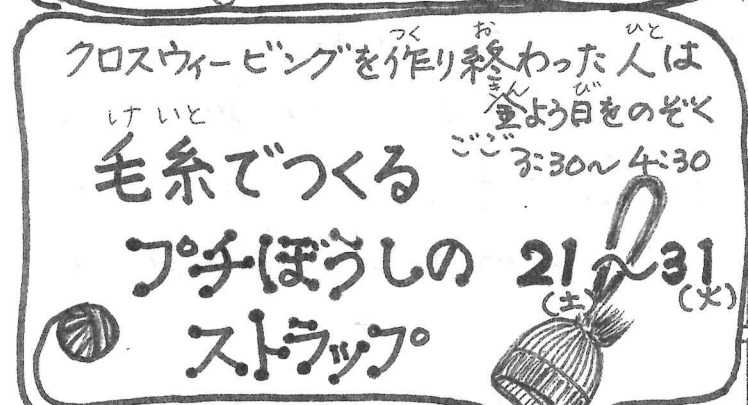 クロスウィービングを作り終わった人は
つく お ひと
金よう日をのぞく
きん び
ごご 3:30〜4:30
けいと
毛糸でつくる
プチぼうしの
ストラップ
21〜31
(土) (火)